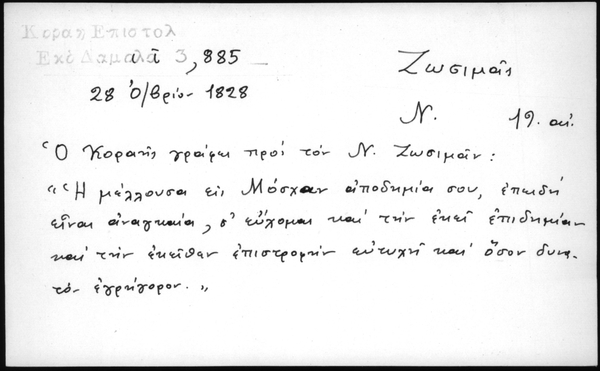 Κοραη Επιστολ
Εκδ Δαμαλα 3, 885
28 Ὀ/βρίου 1828
Ζωσιμᾶς
Ν. 19. αἰ.
Ὁ Κοραῆς γράφει πρὸς τὸν Ν. Ζωσιμᾶν:
«Ἡ μέλλουσα εἰς Μόσχαν ἀποδημία σου, ἐπειδὴ
εἶναι ἀναγκαία, σ' εὔχομαι καὶ τὴν ἐκεῖ ἐπιδημίαν
καὶ τὴν ἐκεῖθεν ἐπιστροφὴν εὐτυχῆ καὶ ὅσον δυνα-
τὸν ἐγρήγορον.»